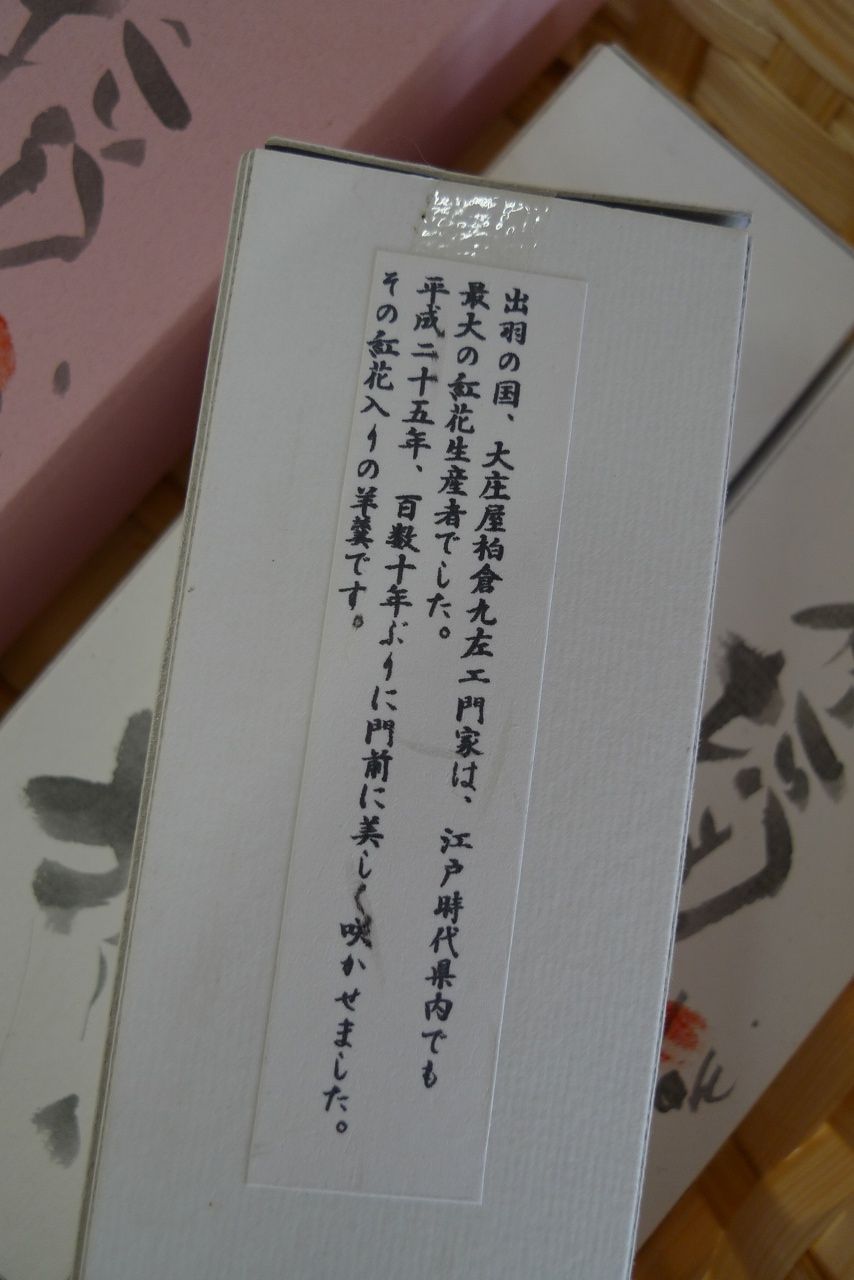 出羽の国、大庄屋柏倉九左エ門家は、江戸時代県内でも
最大の紅花生産者でした。
平成二十五年、百数十年ぶりに門前に美しく咲かせました。
その紅花入りの羊羹です。